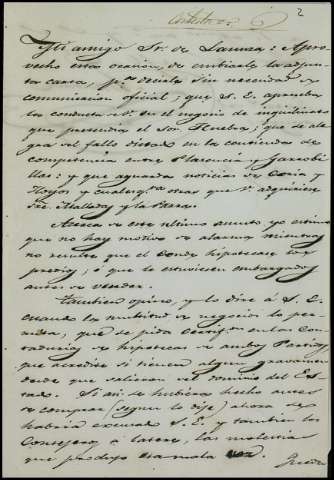 Contestada
2
Mi amigo Sr. de Lamoza: Apro-
vecho esta ocasion, de embiarle la adjun-
ta carta, pª decirle sin necesidad de
comunicacion oficial; que S. E. aprueba
la conducta de V. en el negocio de inquilinato
que pretendia el Sor.; que se ale-
gra del fallo dictado en la contienda de
competencia entre Plasencia y Garrobi-
llas: y que aguarda noticias de Coria y
Hoyos y cualesqrª otras que V. adquiriere
de Malladas y la
Acerca de este ultimo asunto yo estimo
que no hay motivo de alarma mientras
no resulte que el Conde hipotecase los
predios, ó que le estuviesen embargados
antes de vender.
Tambien opino, y lo dire á S. E.
cuando la multitud de negocios lo per-
mita, que se pida certifºn en las Con-
tadurias de hipotecas de ambos Partidos
que acredite si tienen algun gravamen
desde que salieron del dominio del Es-
tado. Si asi se hubiera hecho antes
de comprar (segun lo dije) ahora se
habria escusado S. E. y tambien los
Consejeros á latere, las molestias
que produjo esa mala